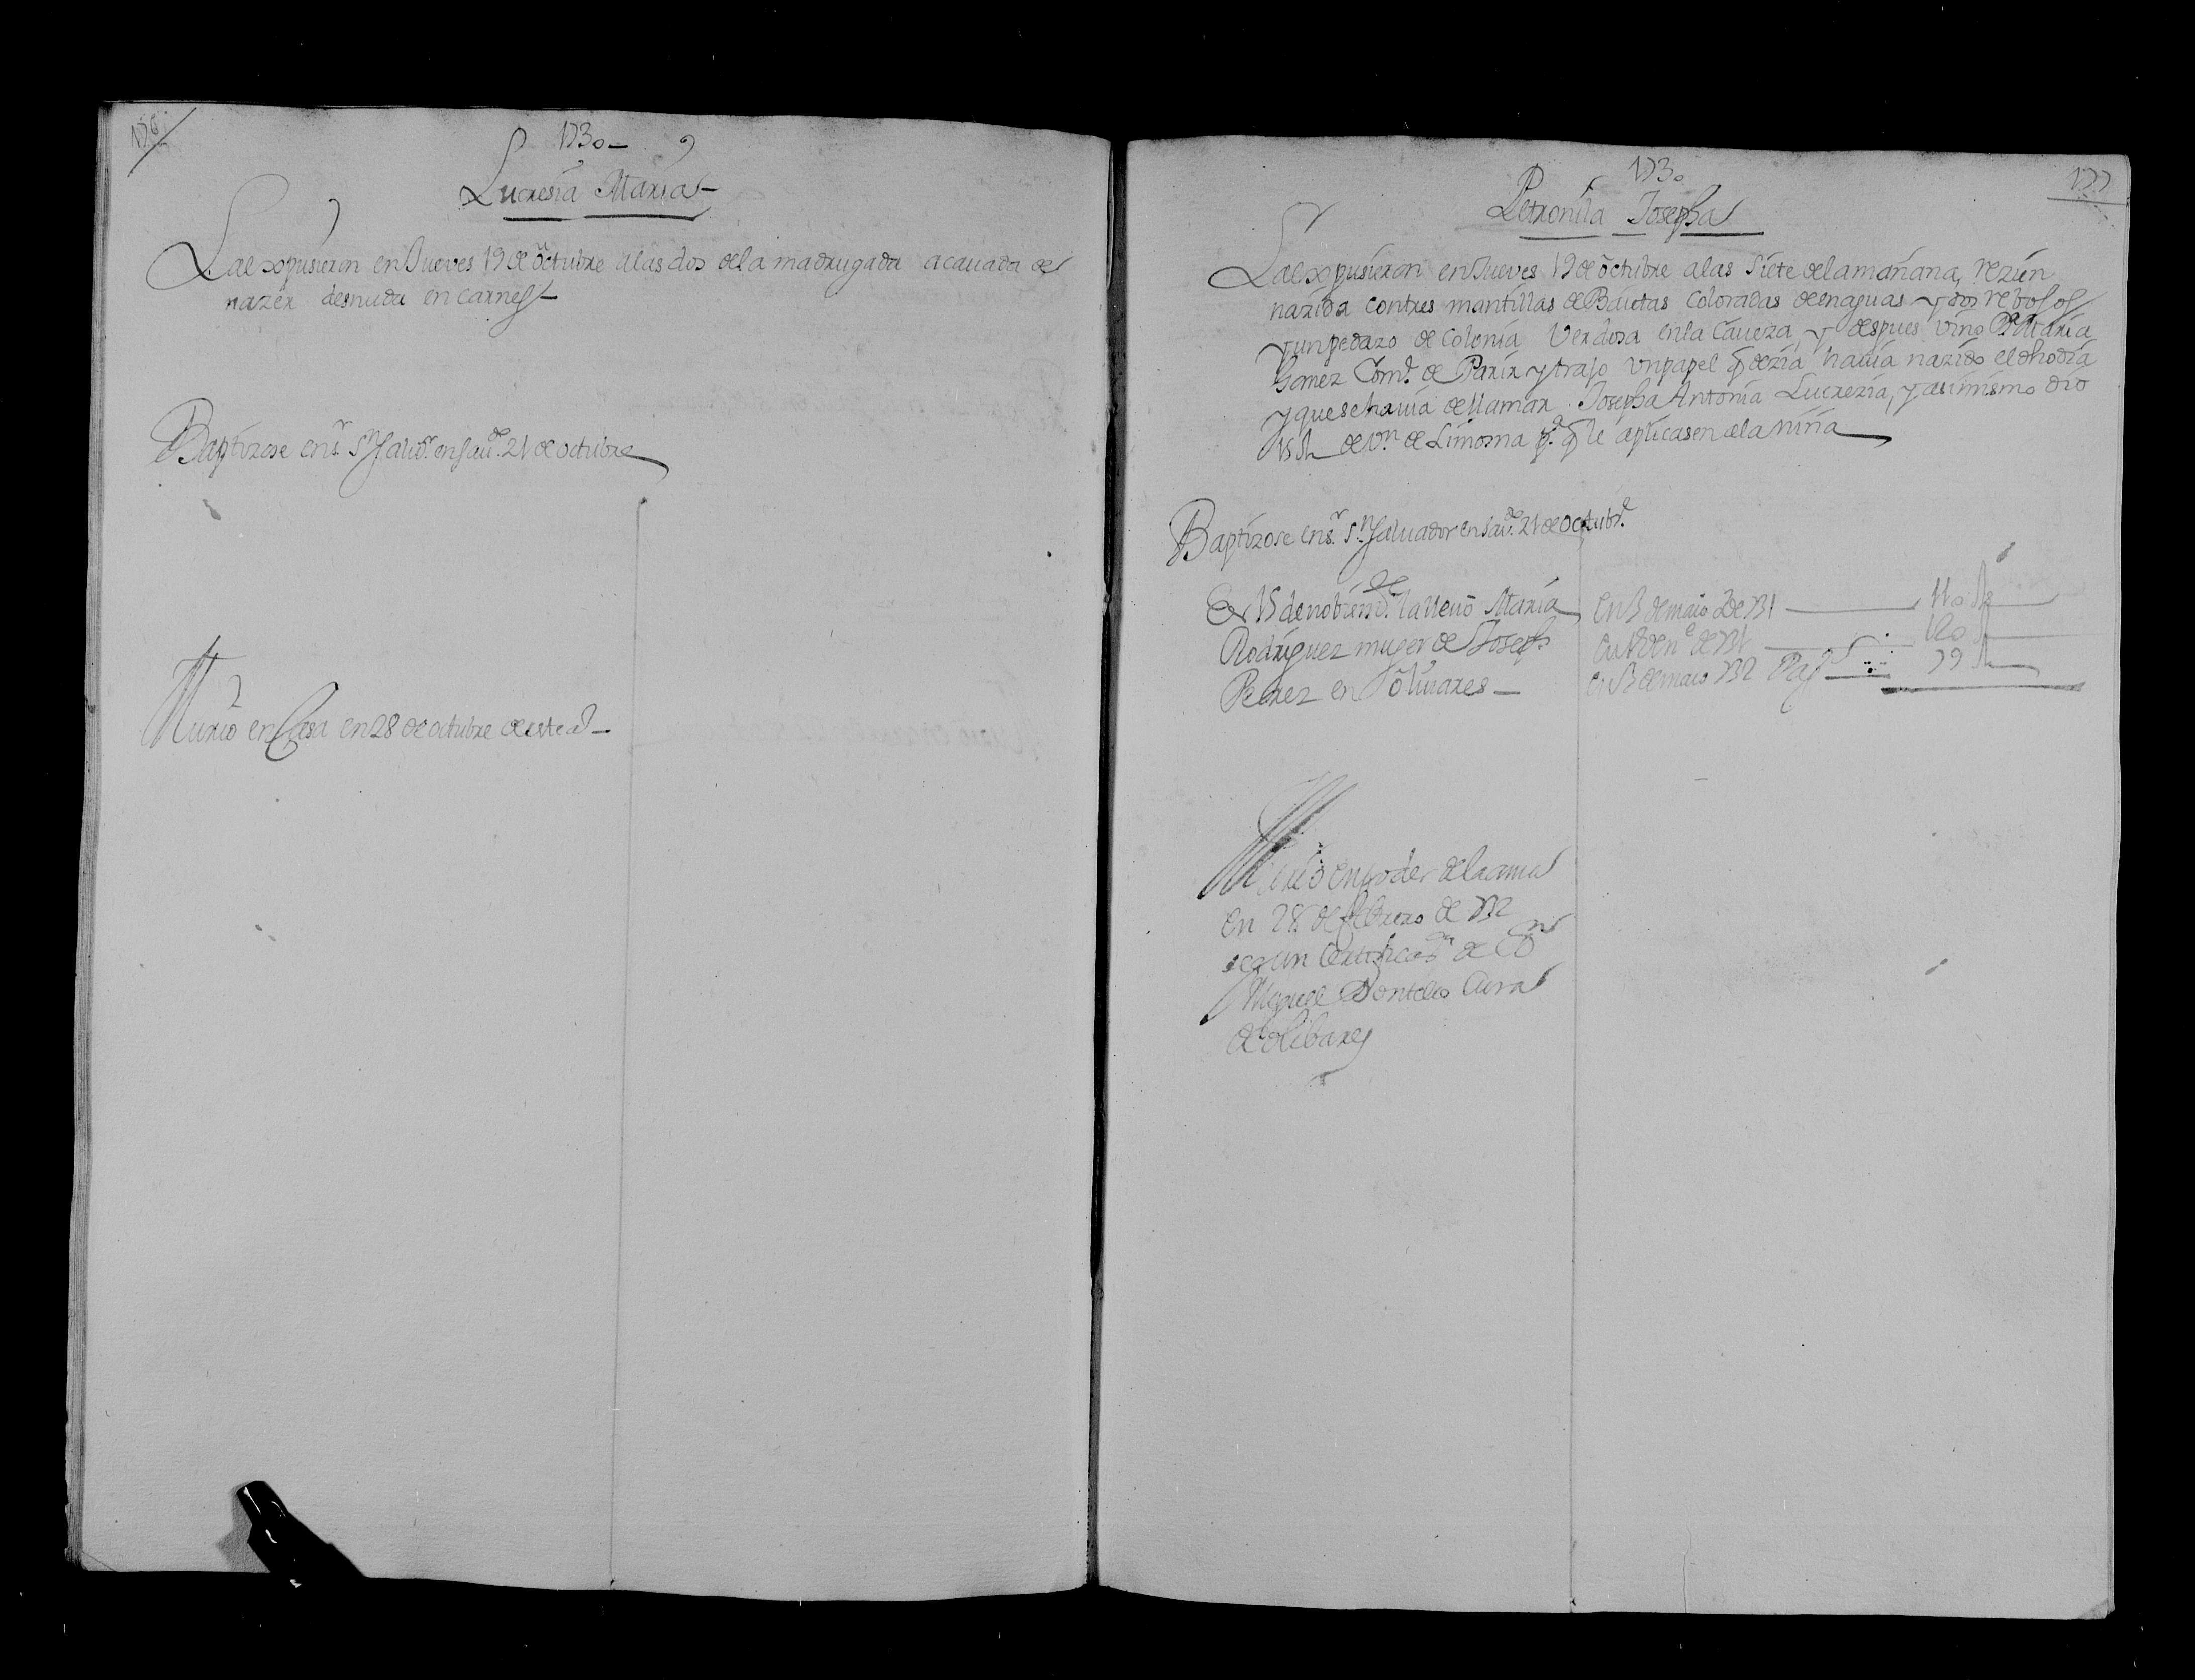 176
1730
Lucresia Maria
La expusieron en Jueves 19 de octubre a las dos de la madrugada acauada de
nazer desnuda en carnes
Baptizose en sr. Sn. Salvr. en saudo. 21 de octubre
Murio en Casa en 28 de octubre de este ao
1730
177
Petronila Josepha
La expusieron en Jueves 19 de octubre a las siete de la mañana, rezien
nazida con tres mantillas de Baietas coloradas de enaguas y dos rebosos
y un pedazo de colonia verdosa en la caueza, y despues vino Maria
Gomez Comde. de Parir y trajo un papel q dezia hauia nazido el dho dia
y que se hauia de llamar Josepha Antonia Lucrezia, y asimismo dio
15 Rs de vn de Limosna pa. q le aplicasen a la niña
Baptizose en sr. Sn. Saluador en saudo. 21 de octubre
En 15 de nobiemde. la lleuo Maria
Rodriguez muger de Joseph
Perez en Oliuares
En 3 de maio de 731 110 Rs
120
en 3 de maio 732 Pag 79
Murio en poder de la ama
en 28 de febrero de 732
segun Certificaon de Dn
Miguel Cura
de olibares